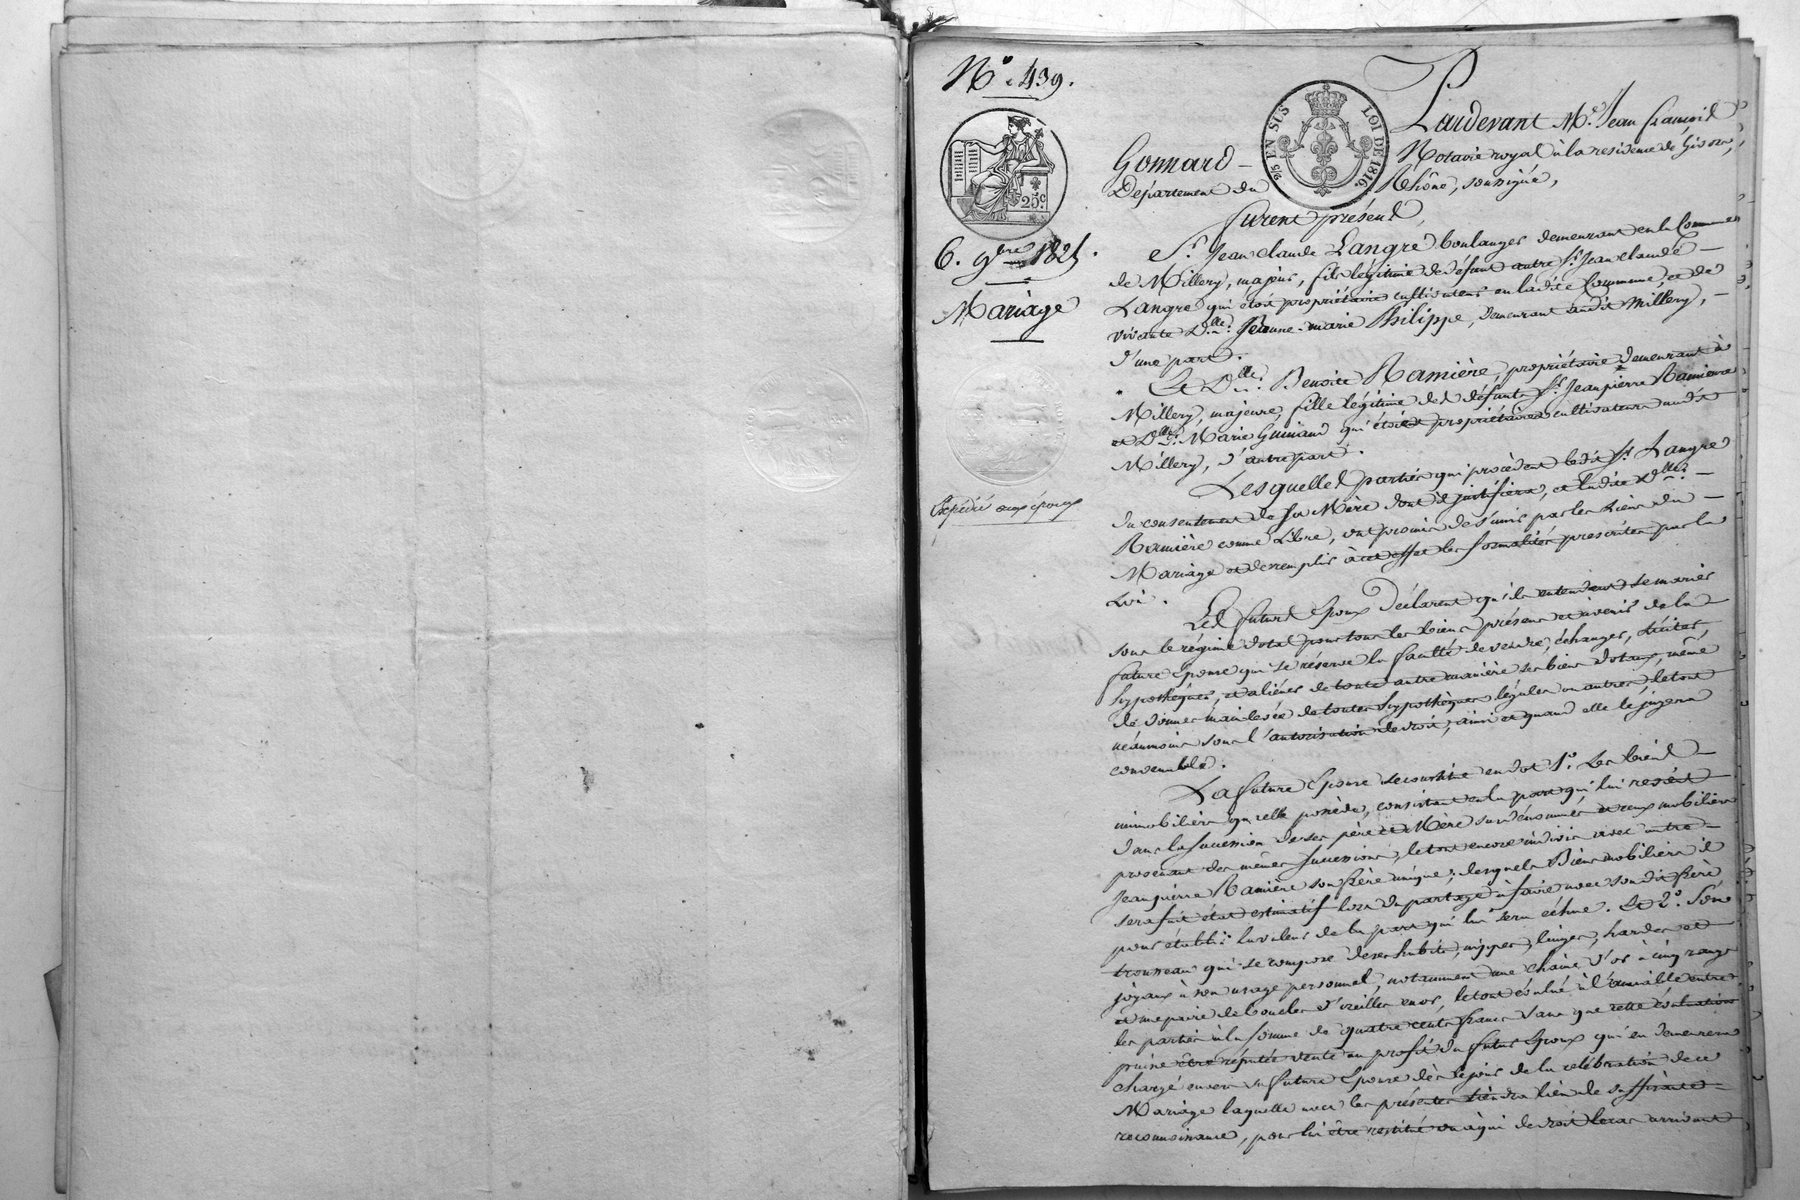 N.º 439.
25 c.
2/5 EN SUS LOI DE 1816.
6. 9bre 1825.
Mariage
Expédié aux époux
Pardevant Me. Jean François
Gonnard – Notaire royal à la residence de Givors,
Département du Rhône, soussigné,
furent présents
Sr. Jean claude Langre boulanger demeurant en la Commune
de Millery, majeur, fils légitime de défunt autre Sr. Jean claude –
Langre qui étoit propriétaire cultivateur en ladite Commune, et de
vivante Dlle. Jeanne-marie Philippe, demeurant audit Millery, –
d'une part.
Et Dlle. Benoite Ramière, propriétaire demeurant à
Millery, majeure, fille légitime des défunts Sr. Jean pierre Ramière
et Dlle. Marie Guinand qui étoient propriétaires cultivateurs audit
Millery, d'autre part.
Lesquelles parties qui procèdent ledit Sr. Langre
du consentement de sa Mère dont il justifiera, et ladite Dlle. –
Ramière comme Libre, ont promis de s'unir par les liens du –
Mariage et de remplir à cet effet les formalités prescrites par la
Loi.
Les futurs Epoux déclarent qu'ils entendent se marier
sous le régime dotal pour tous les biens présens et à venir de la
future Epouse qui se réserve la faculté de vendre, échanger, liciter
hypothéquer, et aliéner de toute autre manière ses biens dotaux, même
de donner main levée de toutes hypothèques légales ou autres, le tout
néanmoins sous l'autorisation de droit, ainsi et quand elle le jugera
convenable.
La future Epouse se constitue en dot 1º. Les biens –
immobiliers qu'elle possède, consistant en la part qui lui revient
dans la succession de ses père et Mère susdénommés et ceux mobiliers
provenant des mêmes successions, le tout encore indivis avec autre –
Jean pierre Ramière son frère unique; desquels Biens mobiliers il
sera fait état estimatif lors du partage à faire avec son dit frère
pour établir la valeur de la part qui lui sera échue. Et 2º. Son
trousseau qui se compose de ses habits, nippes, linges, hardes et
joyaux à son usage personnel, notamment une chaîne d'or à cinq rangs
et une paire de boucles d'oreilles en or, le tout évalué à l'amiable entre
les parties à la somme de quatre cents francs sans que cette évaluation
puisse être réputée vente au profit du futur Epoux qui en demeurera
chargé envers sa future Epouse dès le jour de la célébration de ce
Mariage laquelle avec les présentes tiendra lieu de suffisante –
reconnoissance, pour lui être restitué ou à qui de droit le cas arrivant